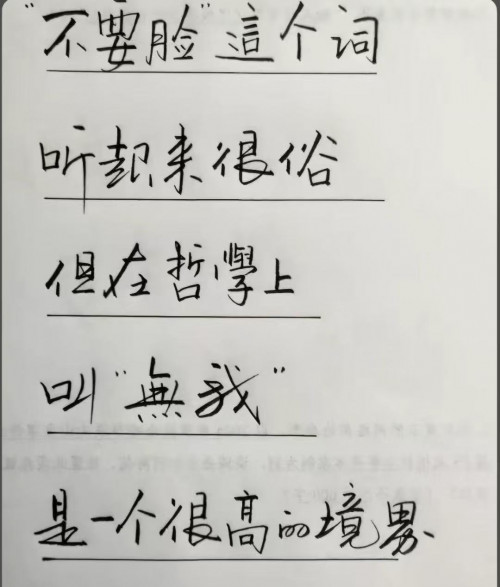 "不要脸"這个词
听起来很俗
但在哲學上
叫"無我"
是一个很高的境界